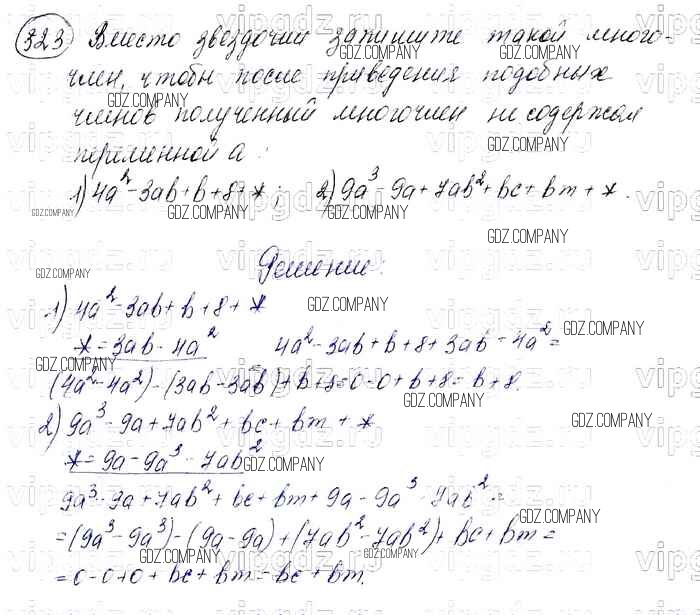 323 Вместо звездочки запишите такой много-
член, чтобы после приведения подобных
членов полученный многочлен не содержал
переменной a:
1) 4a² - 3ab + b + 8 + *; 2) 9a³ - 9a + 7ab² + bc + bm + *.
Решение:
1) 4a² - 3ab + b + 8 + *
* = 3ab - 4a² 4a² - 3ab + b + 8 + 3ab - 4a² =
(4a² - 4a²) - (3ab - 3ab) + b + 8 = 0 - 0 + b + 8 = b + 8.
2) 9a³ - 9a + 7ab² + bc + bm + *
* = 9a - 9a³ - 7ab²
9a³ - 9a + 7ab² + bc + bm + 9a - 9a³ - 7ab² =
= (9a³ - 9a³) - (9a - 9a) + (7ab² - 7ab²) + bc + bm =
= 0 - 0 + 0 + bc + bm = bc + bm.
GDZ.COMPANY
vipgdz.ru